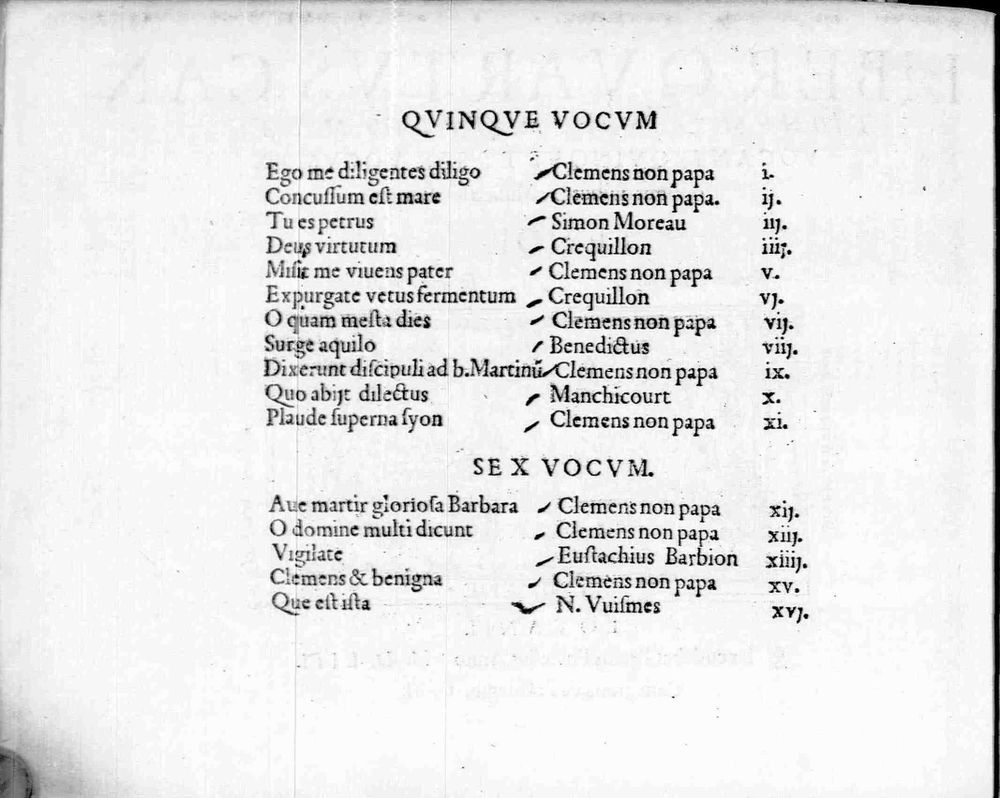 QVINQVE VOCVM
Ego me diligentes diligo Clemens non papa i.
Concuſſum eſt mare Clemens non papa. ij.
Tu es petrus Simon Moreau iij.
Deus virtutum Crequillon iiij.
Miſit me viuens pater Clemens non papa v.
Expurgate vetus fermentum Crequillon vj.
O quam meſta dies Clemens non papa vij.
Surge aquilo Benedictus viij.
Dixerunt diſcipuli ad b.Martinū Clemens non papa ix.
Quo abijt dilectus Manchicourt x.
Plaude ſuperna ſyon Clemens non papa xi.
SEX VOCVM.
Aue martir glorioſa Barbara Clemens non papa xij.
O domine multi dicunt Clemens non papa xiij.
Vigilate Euſtachius Barbion xiiij.
Clemens & benigna Clemens non papa xv.
Que eſt iſta N. Vuiſmes xvj.